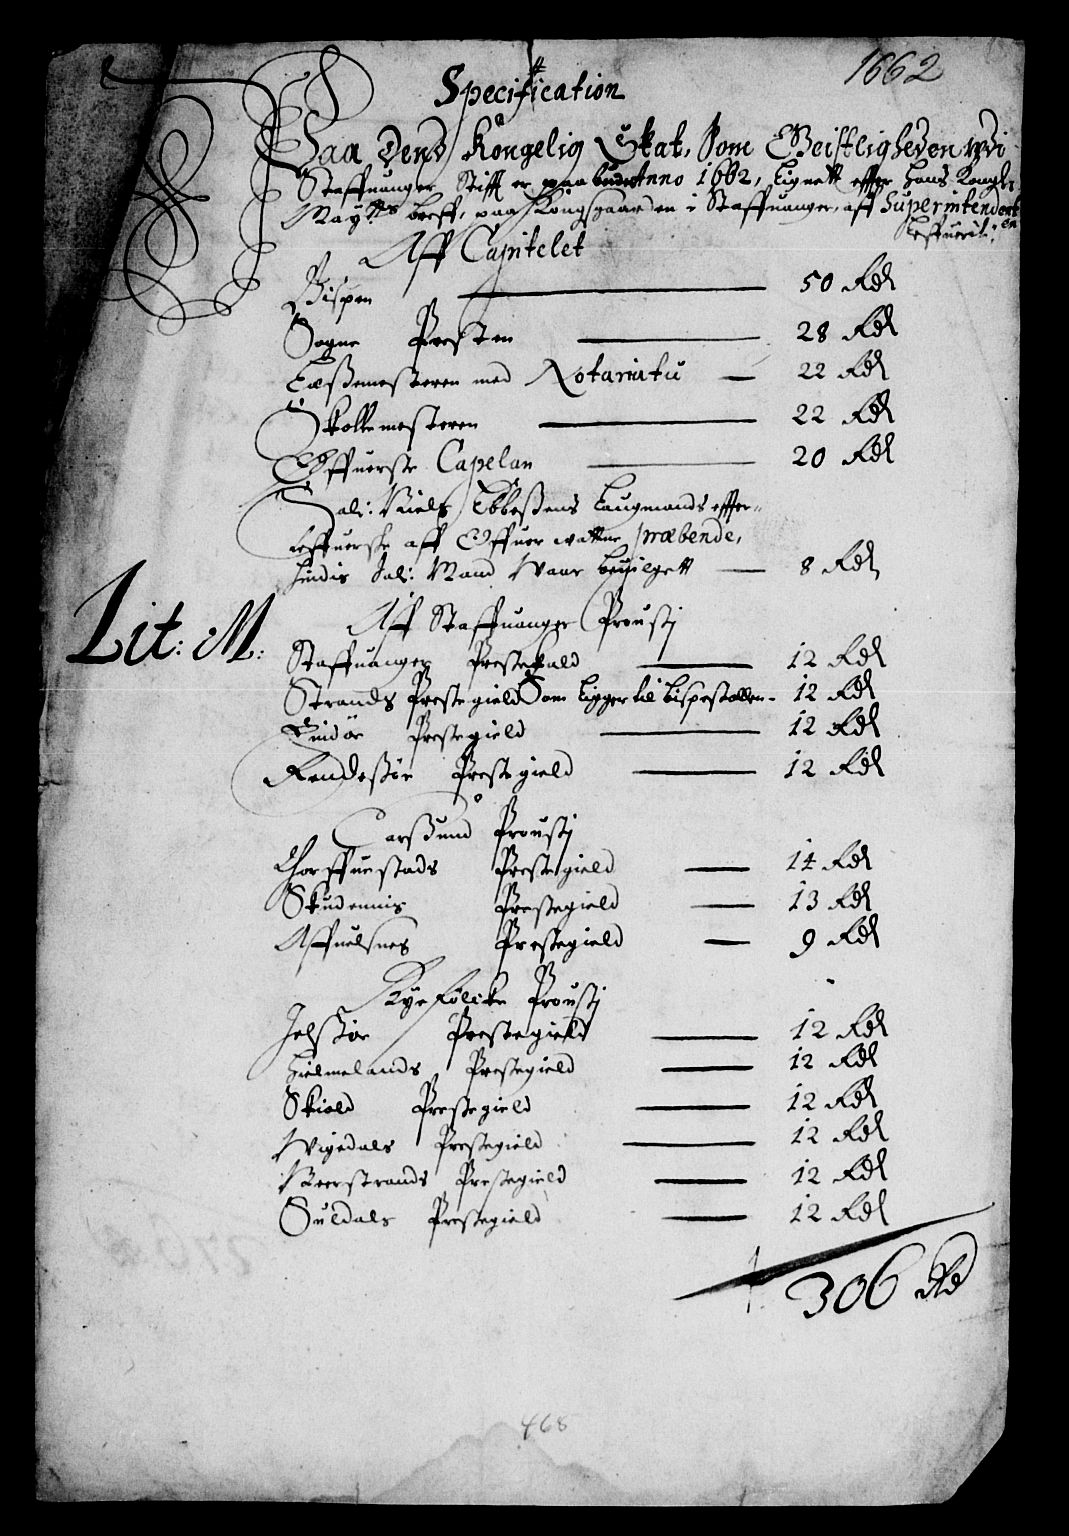 1662
Specification
Paa Dend Kongelig Skat, Som Geistligheden udi
Staffuanger Stift er paabuden Anno 1662, Lignett effter Hans Kongl:
Mayts breff, paa Kongsgaarden i Staffuanger, aff Superintendenten
Leffuerit:
Aff Capitelet
Bispen 50 Rdl
Sogne Presten 28 Rdl
Læssemesteren med Notariatu 22 Rdl
Skollemesteren 22 Rdl
Øffuerste Capelan 20 Rdl
Sal: Niels Ebbessens Laugmands effter-
leffuerske aff Øffuer præbende,
hindis Sal: Mand Waar beuilgett 8 Rdl
Aff Staffuanger Prousti
Staffuanger Prestekald 12 Rdl
Strands Prestegield Som Ligger til bispestollen 12 Rdl
Findør Prestegield 12 Rdl
Rendessør Prestegield 12 Rdl
Carssund Prousti
Thorffuestads Prestegield 14 Rdl
Skudennis Prestegield 13 Rdl
Affuelsnes Prestegield 9 Rdl
Ryefølcke Prousti
Jelssør Prestegield 12 Rdl
Hielmelands Prestegield 12 Rdl
Skiold Prestegield 12 Rdl
Wigedals Prestegield 12 Rdl
Neerstrands Prestegield 12 Rdl
Suldals Prestegield 12 Rdl
306 Rd
Lit: M:
468